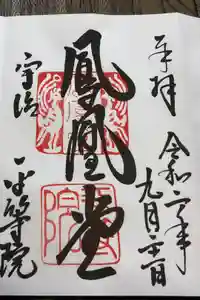 奉拝
令和二年
九月二十二日
鳳凰堂
宇治
平等院